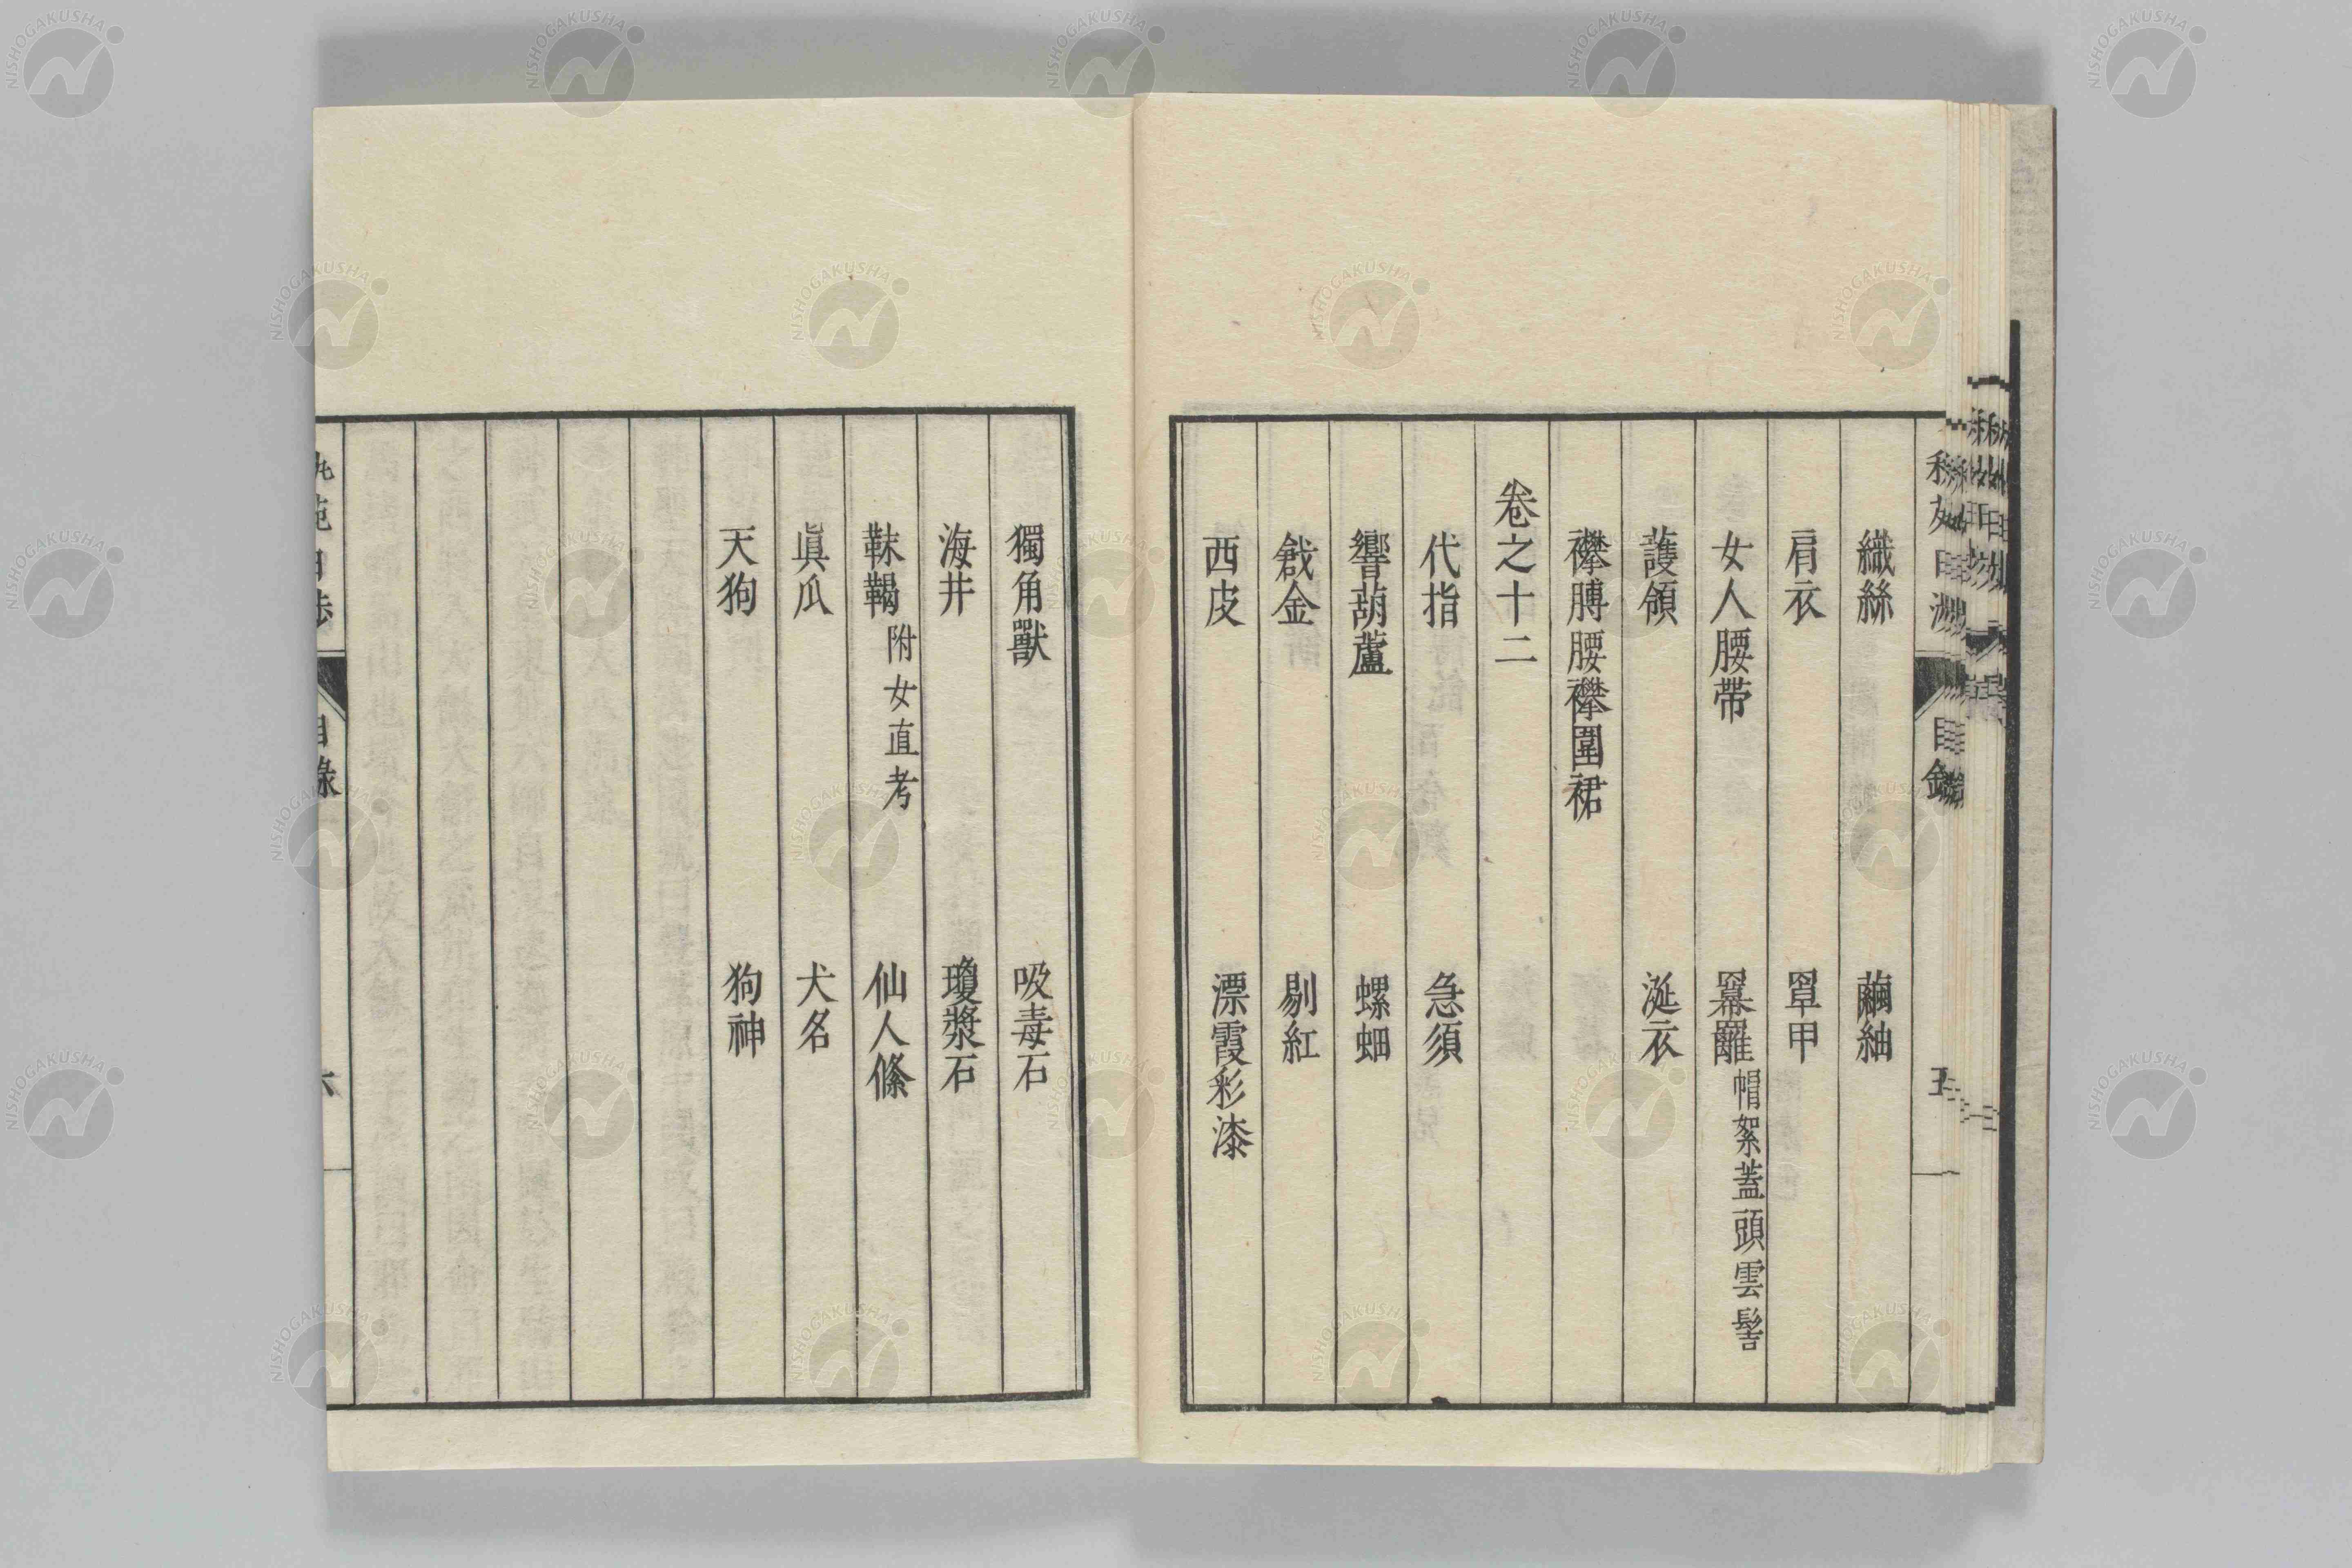 織絲　繭紬
肩衣　罩甲
女人腰帶　冪䍦帽絮蓋頭雲髻
護領　涎衣
襻膊腰襻圍裙
卷之十二
代指　急須
響葫蘆　螺蚰
戧金　剔紅
西皮　漂霞彩漆
目錄
獨角獸　吸毒石
海井　瓊漿石
靺鞨附女直考　仙人絛
眞瓜　犬名
天狗　狗神
目錄
NISHOGAKUSHA